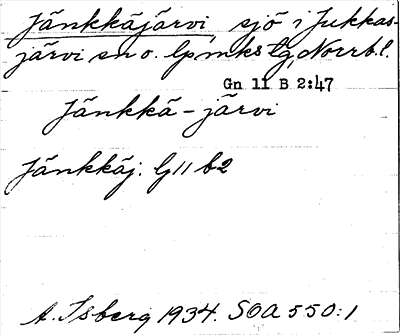 Jänkkäjärvi, sjö i Jukkas-
järvi sn o. lpmks tg, Norrb. l.
Gn 11 B 2:47
Jänkkä-järvi
Jänkkäj. G11 b2
A. Isberg 1934. SOA 550:1